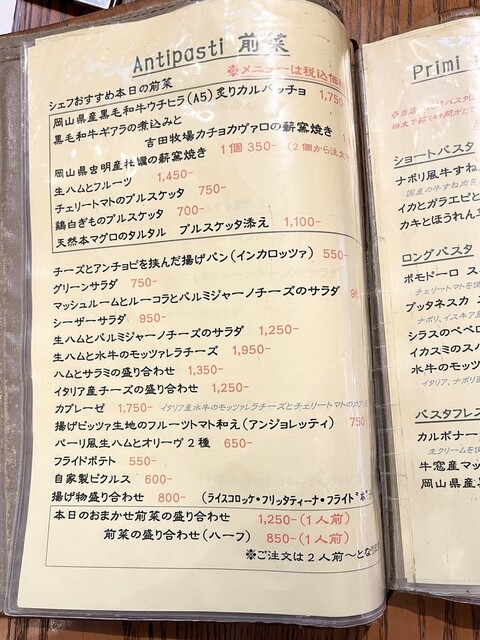 Antipasti 前菜
※メニューは税込価
シェフおすすめ本日の前菜
岡山県産黒毛和牛ウチヒラ(A5)炙りカルパッチョ 1,750
黒毛和牛ギアラの煮込みと
吉田牧場カチョカヴァロの薪窯焼き
岡山県虫明産牡蠣の薪窯焼き 1個350-(2個から注文
生ハムとフルーツ 1,450-
チェリートマトのブルスケッタ 750-
鶏白ぎものブルスケッタ 700-
天然本マグロのタルタル ブルスケッタ添え 1,100-
チーズとアンチョビを挟んだ揚げパン(インカロッツァ) 550-
グリーンサラダ 750-
マッシュルームとルーコラとパルミジャーノチーズのサラダ
シーザーサラダ 950-
生ハムとパルミジャーノチーズのサラダ 1,250-
生ハムと水牛のモッツァレラチーズ 1,950-
ハムとサラミの盛り合わせ 1,350-
イタリア産チーズの盛り合わせ 1,250-
カプレーゼ 1,750- イタリア産水牛のモッツァレラチーズとチェリートマトのカプ
揚げピッツァ生地のフルーツトマト和え(アンジョレッティ) 750
バーリ風生ハムとオリーヴ2種 650-
フライドポテト 550-
自家製ピクルス 600-
揚げ物盛り合わせ 800- (ライスコロッケ・フリッタティーナ・フライドポテ
本日のおまかせ前菜の盛り合わせ 1,250-(1人前)
前菜の盛り合わせ(ハーフ) 850-(1人前)
※ご注文は2人前〜とな
Primi
ショートパスタ
ナポリ風牛すね
国産の牛すね肉を
イカとガラエビと
カキとほうれん
ロングパスタ
ポモドーロ ス
チェリートマトを使
プッタネスカ
ナポリ、イスキア島
シラスのペペロ
イカスミのス
水牛のモッツ
イタリア、ナポリ
パスタフレス
カルボナー
生クリームを使
牛窓産マッ
岡山県産